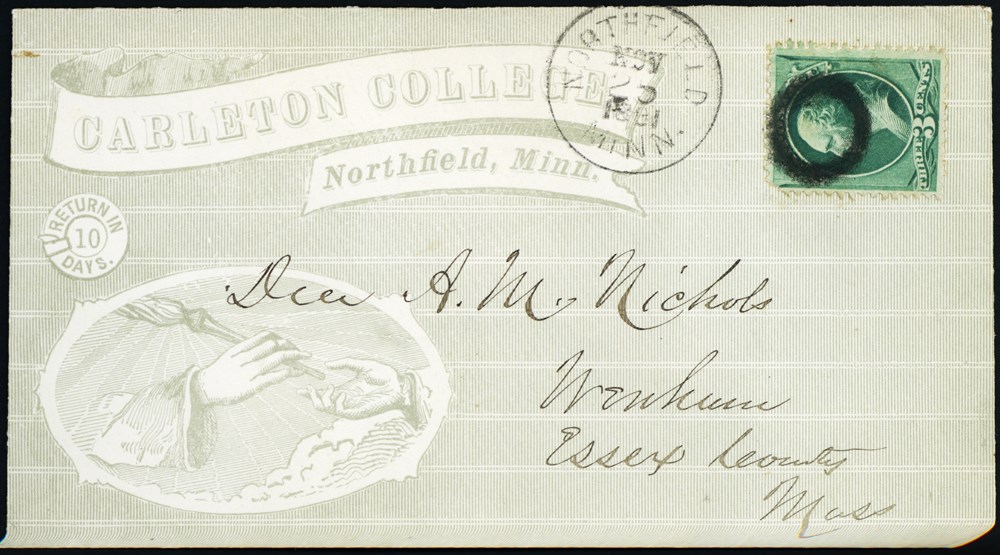 CARLETON COLLEGE
Northfield, Minn.
NORTHFIELD
NOV
1881
MINN.
3
CENTS
RETURN IN
10
DAYS.
Dea A. M. Nichols
Wenham
Essex County
Mass